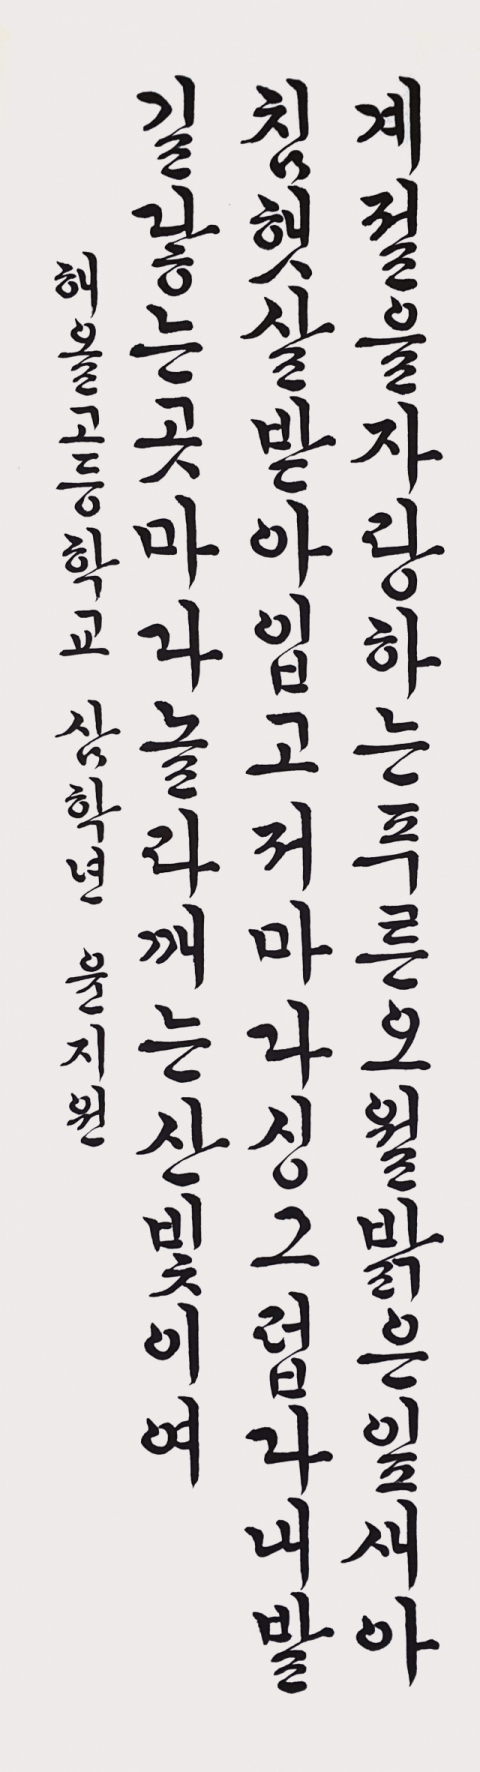 계절을자랑하는푸른오월밝은잎새아
침햇살받아입고저마다싱그럽다내발
길닿는곳마다놀라깨는산빛이여
해올고등학교 삼학년 윤지원